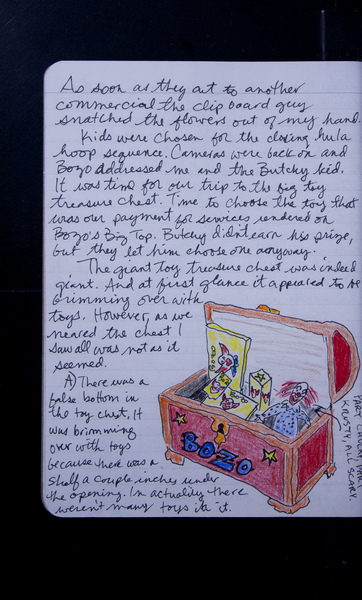 As soon as they cut to another
commercial the clip board guy
snatched the flowers out of my hand.
Kids were chosen for the closing hula
hoop sequence. Cameras were back on and
Bozo addressed me and the Butchy kid.
It was time for our trip to the big toy
treasure chest. Time to choose the toy that
was our payment for services rendered on
Bozo's Big Top. Butchy didn't earn his prize,
but they let him choose one anyway.
The giant toy treasure chest was indeed
giant. And at first glance it appeared to be
brimming over with
toys. However, as we
neared the chest I
saw all was not as it
seemed.
A) There was a
false bottom in
the toy chest. It
was brimming
over with toys
because there was a
shelf a couple inches under
the opening. In actuality there
weren't many toys in it.
BOZO
BOZO
KRUSTY, ALL SCARY.